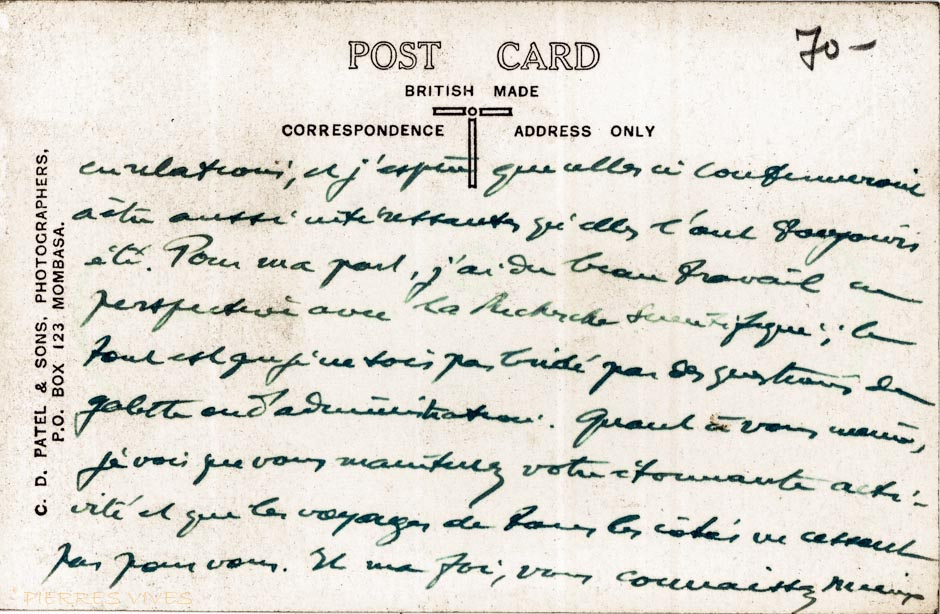 70-
POST CARD
BRITISH MADE
CORRESPONDENCE ADDRESS ONLY
C. D. PATEL & SONS, PHOTOGRAPHERS,
P.O. BOX 123 MOMBASA.
en relations, et j'espère que celles ci continueront
à être aussi intéressantes qu'elles l'ont toujours
été. Pour ma part, j'ai du beau travail en
perspective avec la Recherche Scientifique ; le
tout est que je ne sois pas bridé par des questions de
galette ou d'administration. Quant à vous même,
je vois que vous maintenez votre étonnante acti-
vité et que les voyages de tous les côtés ne cessent
pas pour vous. Et ma foi, vous connaissez mieux
PIERRES VIVES